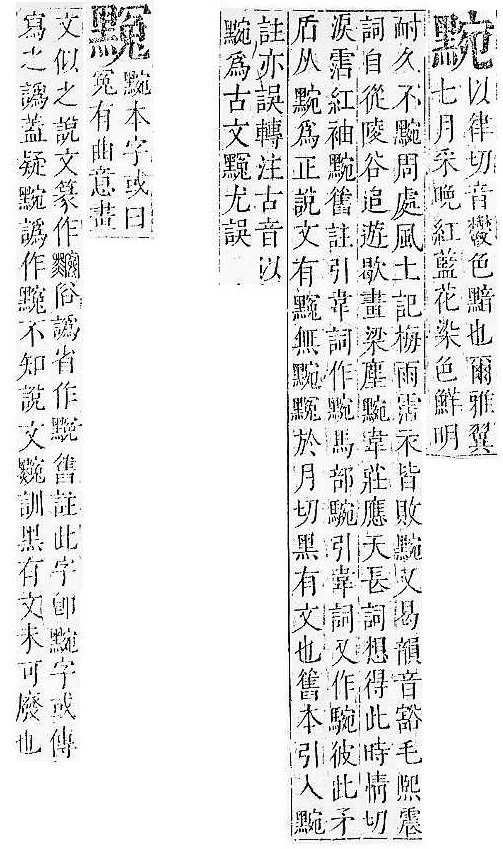 黦以律切音鬱色黯也爾雅翼
七月采晚紅藍花染色鮮明
耐久不黦周處風土記梅雨霑衣皆敗黦又曷韻音豁毛熙震
詞自從陵谷追遊歇畫梁塵黦韋莊應天長詞想得此時情切
淚霑紅袖黦舊註引韋詞作黦馬部引韋詞又作彼此矛
盾从黦爲正說文有無黦於月切黑有文也舊本引入黦
註亦誤轉注古音以
黦爲古文尤誤
黦本字或曰
冤有曲意畫
文似之說文篆作俗譌省作黦舊註此字卽黦字或傳
寫之譌蓋疑黦譌作不知說文訓黑有文未可廢也